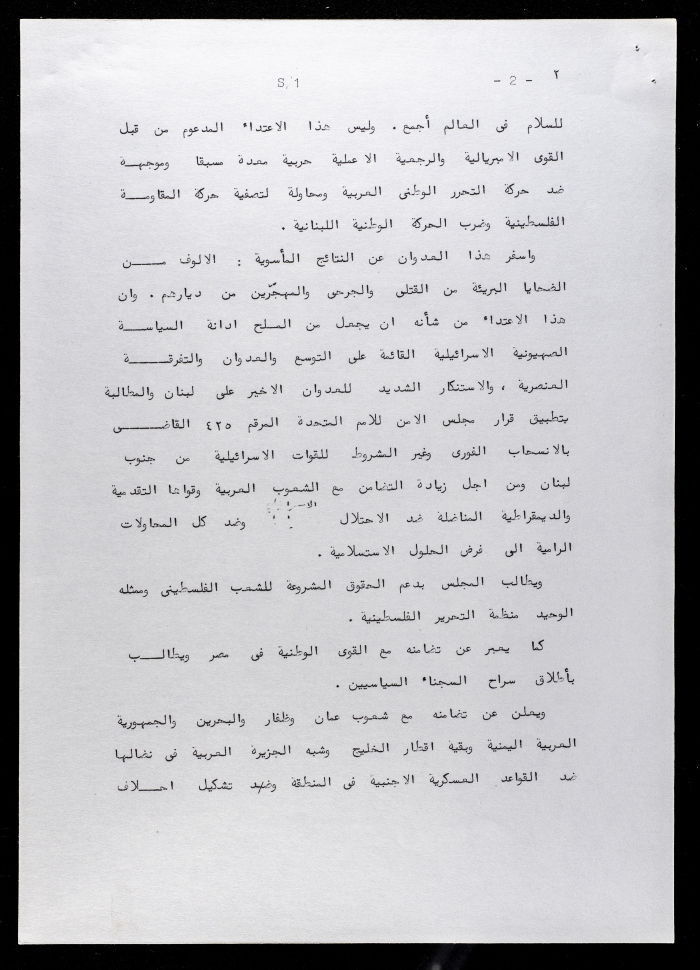 S/1 - 2 - ٢
للسلام فى العالم أجمع . وليس هذا الاعتداء المدعوم من قبل
القوى الامبريالية والرجعية الا عملية حربية معدة مسبقا وموجهـــة
ضد حركة التحرر الوطنى العربية ومحاولة لتصفية حركة المقاومـــة
الفلسطينية وضرب الحركة الوطنية اللبنانية .
واسفر هذا العدوان عن النتائج المأسوية : الالوف مـــن
الضحايا البريئة من القتلى والجرحى والمهجّرين من ديارهم . وان
هذا الاعتداء من شأنه ان يجعل من الملح ادانة السياســة
الصهيونية الاسرائيلية القائمة على التوسع والعدوان والتفرقـــة
العنصرية ، والاستنكار الشديد للعدوان الاخير على لبنان والمطالبة
بتطبيق قرار مجلس الامن للامم المتحدة المرقم ٤٢٥ القاضـــى
بالانسحاب الفورى وغير المشروط للقوات الاسرائيلية من جنوب
لبنان ومن اجل زيادة التضامن مع الشعوب العربية وقواها التقدمية
والديمقراطية المناضلة ضد الاحتلال وضد كل المحاولات
الرامية الى فرض الحلول الاستسلامية .
ويطالب المجلس بدعم الحقوق المشروعة للشعب الفلسطينى وممثله
الوحيد منظمة التحرير الفلسطينية .
كما يعبر عن تضامنه مع القوى الوطنية فى مصر ويطالـــب
بأطلاق سراح السجناء السياسيين .
ويعلن عن تضامنه مع شعوب عمان وظفار والبحرين والجمهورية
العربية اليمنية وبقية اقطار الخليج وشبه الجزيرة العربية فى نضالها
ضد القواعد العسكرية الاجنبية فى المنطقة وضد تشكيل احـــلاف